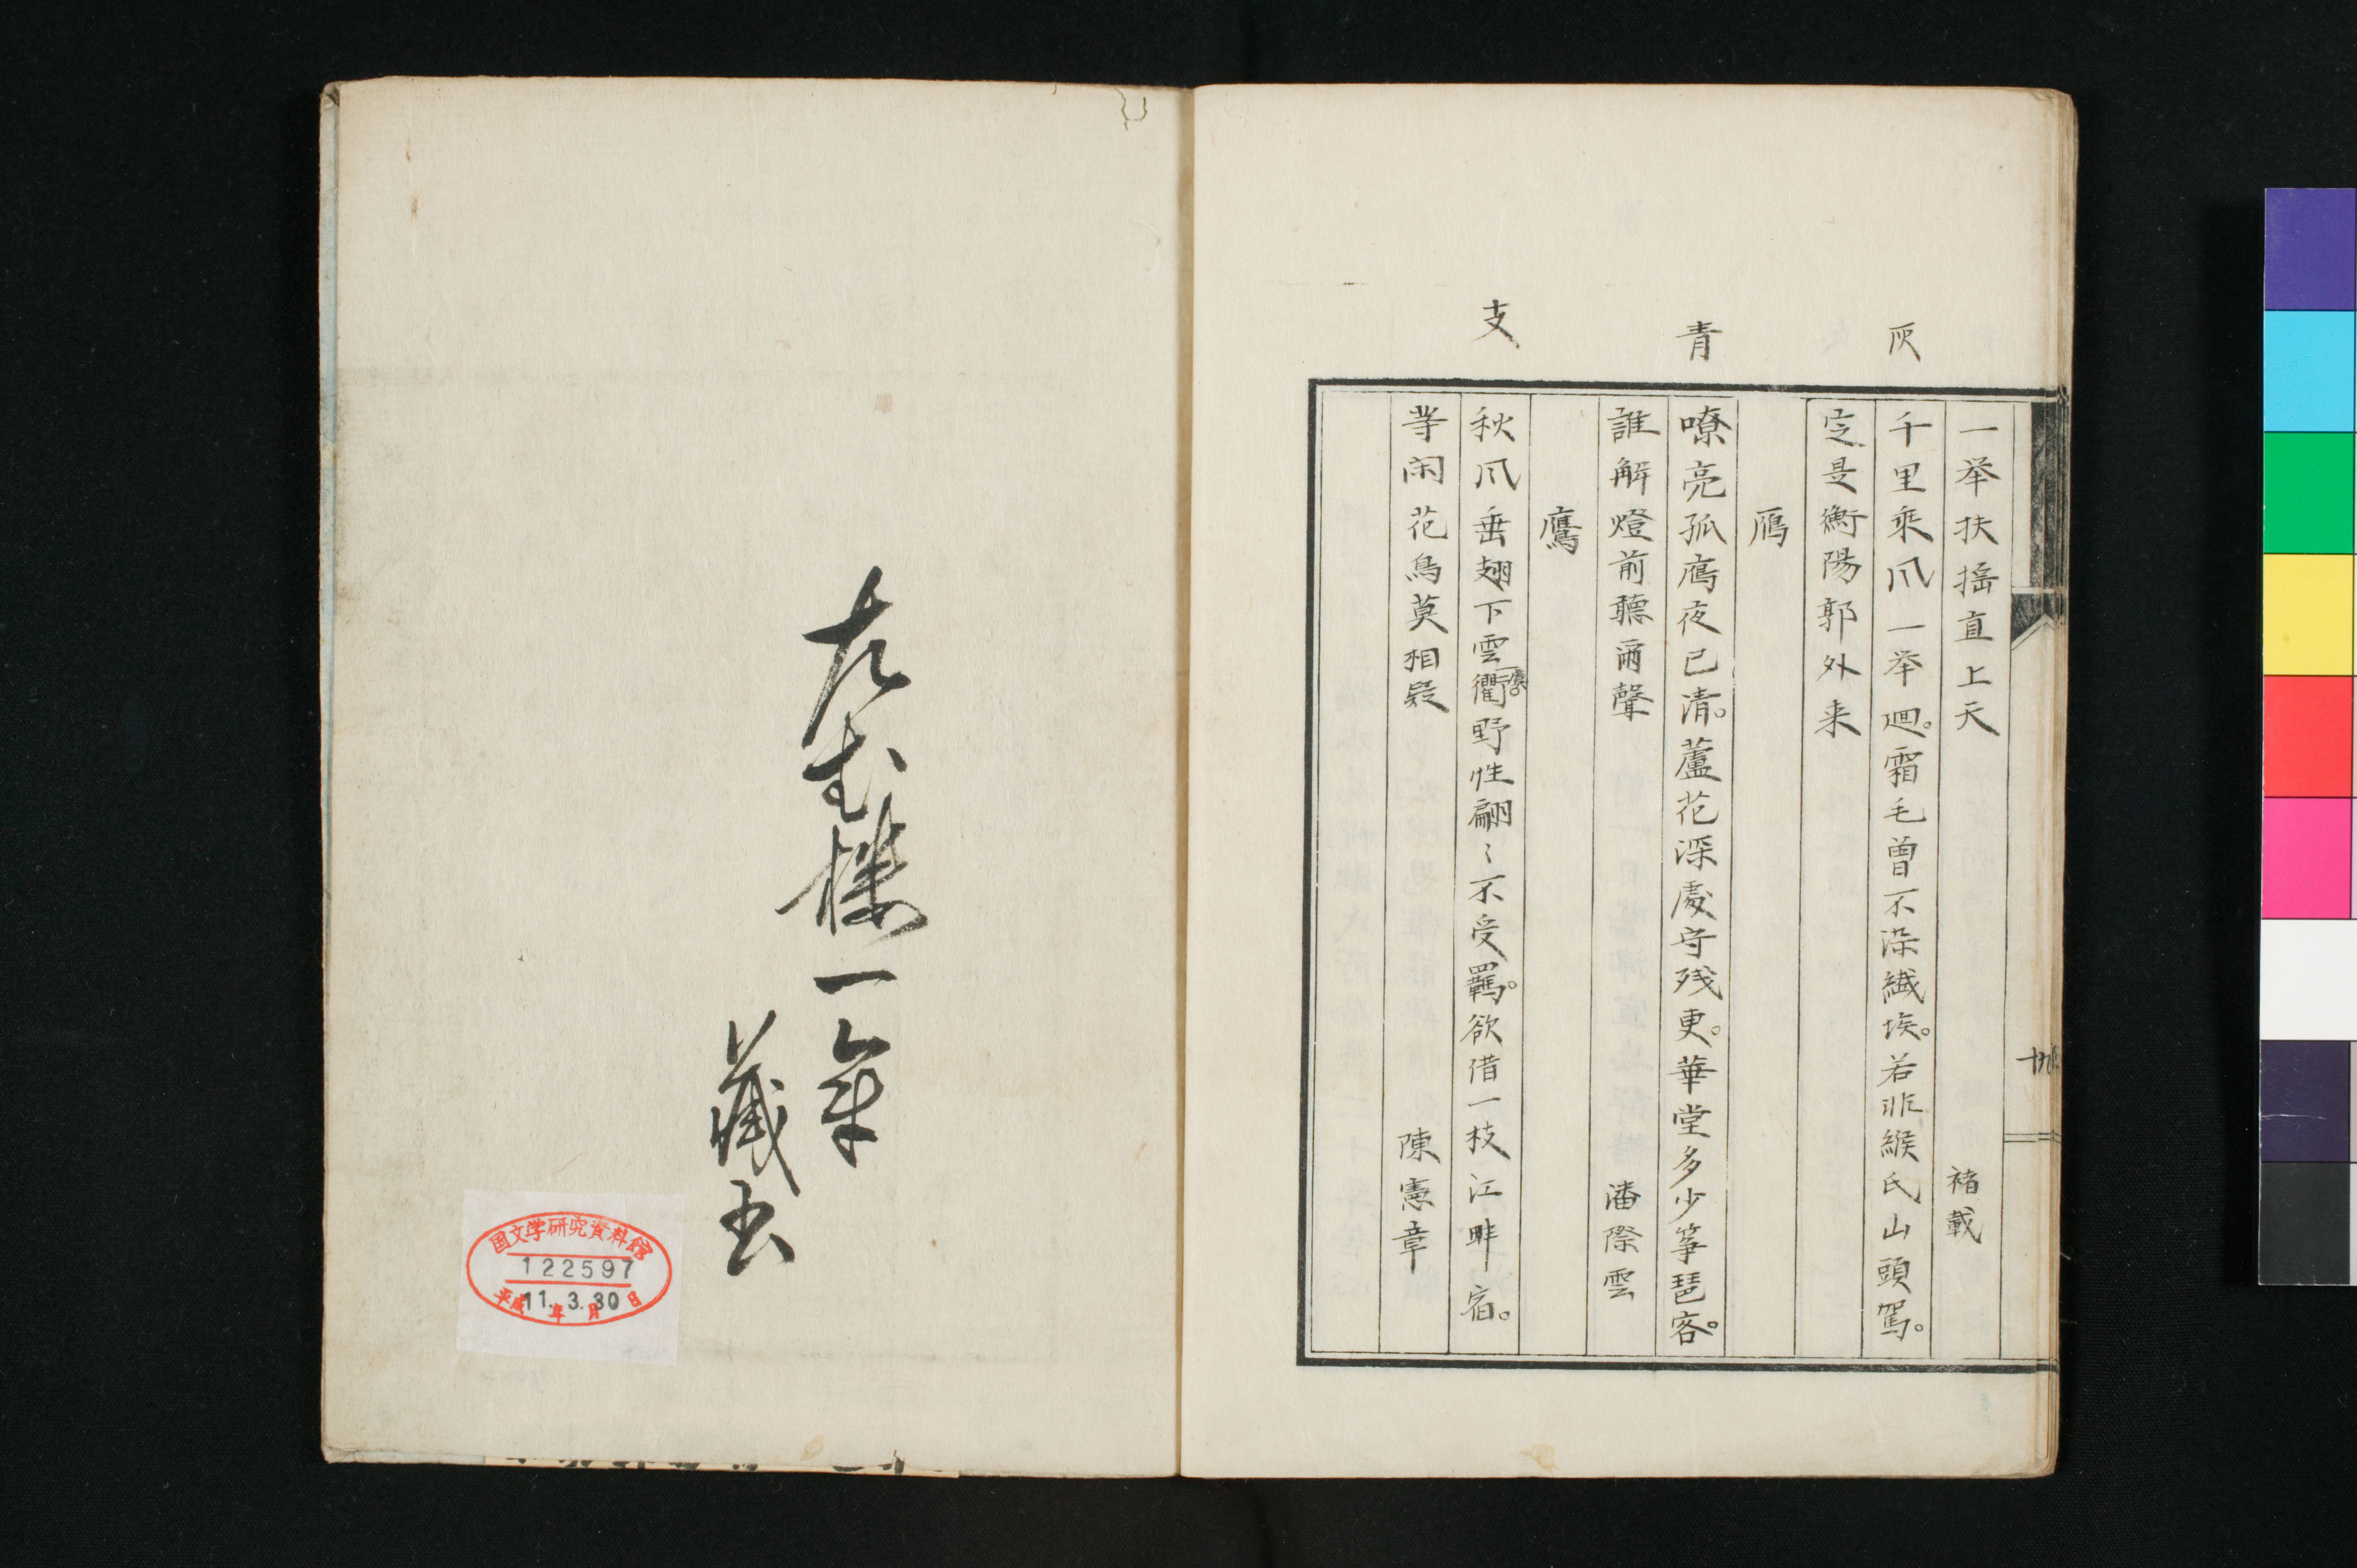 灰
青
支
一举扶摇直上天
褚載
千里乘风一举廻。霜毛曾不染纎埃。若非緱氏山頭駕。
定是衡陽郭外来
鴈
嘹亮孤鴈夜已清。蘆花深處守残更。華堂多少筝琶客。
誰解燈前聽爾聲
潘際雲
鷹
秋风垂翅下雲衢。野性翩〻不受羈。欲借一枝江畔宿。
等闲花鳥莫相疑
陳憲章
十九
樓一笔
藏书
国文学研究資料館
122597
平成11年3月30日